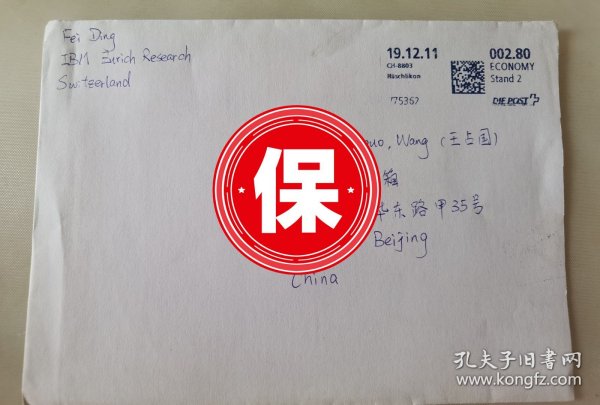 Fei Ding
IBM Zurich Research
Switzerland
19.12.11
CH-8803
Rüschlikon
75362
002.80
ECONOMY
Stand 2
DIE POST
uo, Wang (王占国)
箱
华东路甲35号
Beijing
China
保
孔夫子旧书网
www.kongfz.com